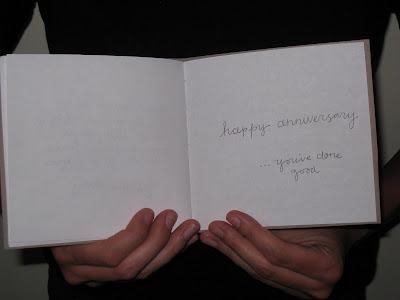 happy anniversary
... you've done
good